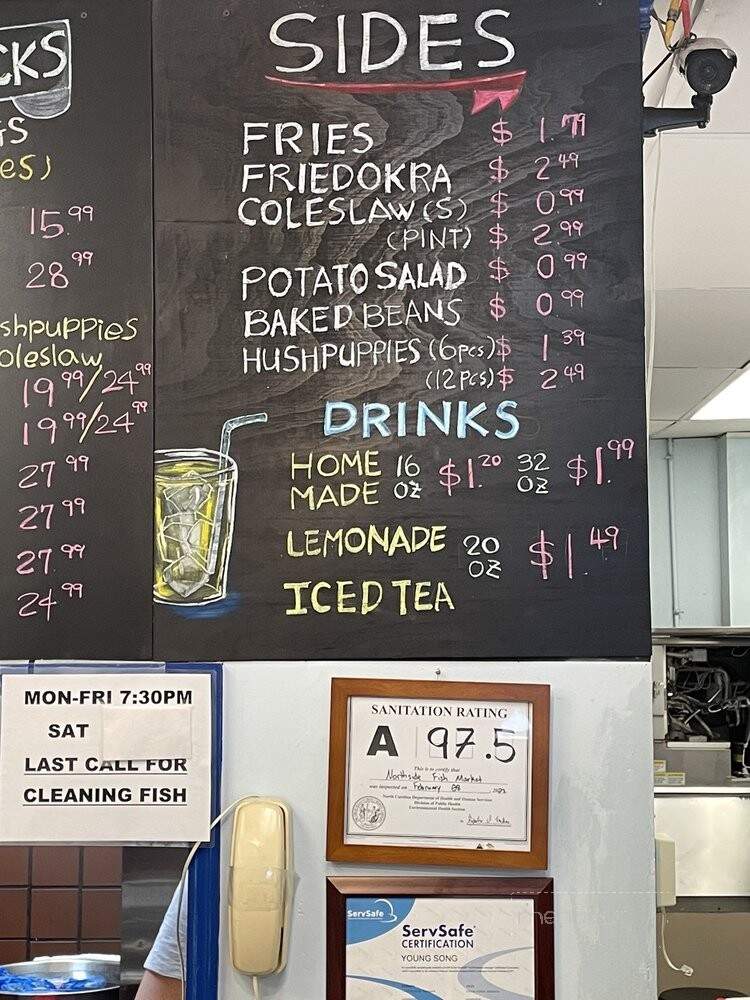 CKS
GS
es)
15.99
28.99
shpuppies
oleslaw
19.99/24.99
19.99/24.99
27.99
27.99
27.99
24.99
SIDES
FRIES $ 1.79
FRIED OKRA $ 2.49
COLESLAW (S) $ 0.99
(PINT) $ 2.99
POTATO SALAD $ 0.99
BAKED BEANS $ 0.99
HUSHPUPPIES (6pcs) $ 1.39
(12pcs) $ 2.49
DRINKS
HOME MADE 16 OZ $1.20 32 OZ $1.99
LEMONADE 20 OZ $1.49
ICED TEA
MON-FRI 7:30PM
SAT
LAST CALL FOR
CLEANING FISH
SANITATION RATING
A 97.5
This is to certify that
Northside Fish Market
was inspected on February
North Carolina Department of Health and Human Services
Division of Public Health
Environmental Health Section
ServSafe
ServSafe
CERTIFICATION
YOUNG SONG